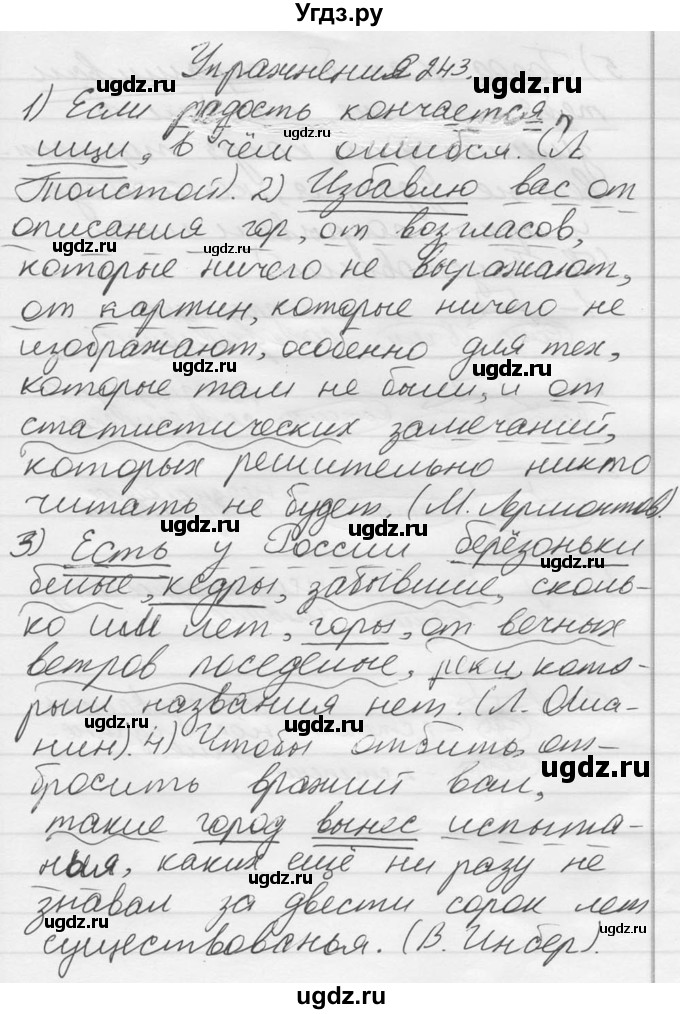 Угдз.ру
Упражнения 243.
1) Если радость кончается,
ищи, в чём ошибся. (Л.
Толстой). 2) Избавлю вас от
описания гор, от возгласов,
которые ничего не выражают,
от картин, которые ничего не
изображают, особенно для тех,
которые там не были, и от
статистических замечаний,
которых решительно никто
читать не будет. (М. Лермонтов).
3) Есть у России берёзоньки
белые, кедры, забывшие, сколь-
ко им лет, горы, от вечных
ветров поседелые, реки, кото-
рым названия нет. (Л. Оша-
нин). 4) Чтобы отбить, от-
бросить вражий вал,
такие город вынес испыта-
нья, каких ещё ни разу не
знавал за двести сорок лет
существованья. (В. Инбер).
ugdz.ru